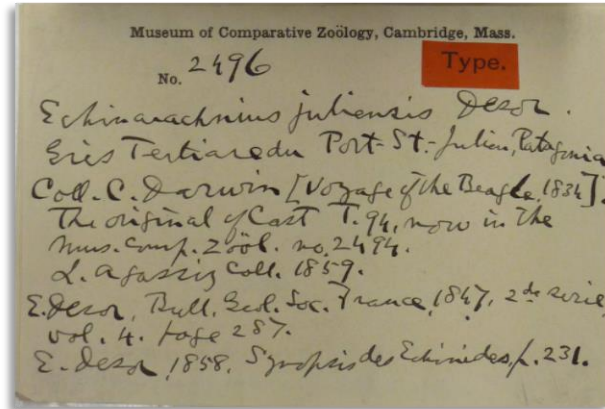 Museum of Comparative Zoölogy, Cambridge, Mass.
No. 2496
Type.
Echinarachnius juliensis Desor.
Grès Tertiaredu Port-St.-Julien, Patagonia
Coll. C. Darwin [Voyage of the Beagle, 1834].
The original of Cast T. 94, now in the
Mus. Comp. Zoöl. no. 2494.
L. Agassiz Coll. 1859.
E. Desor, Bull. Geol. Soc. France, 1847, 2de serie
vol. 4. page 287.
E. Desor, 1858, Synopsis des Echinides, p. 231.